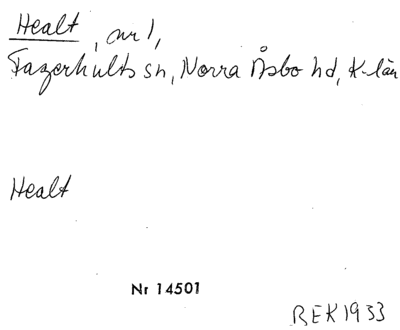 Healt, nr 1,
Fagerhults sn, Norra Åsbo hd, K-län
Healt
Nr 14501
BEK 1933